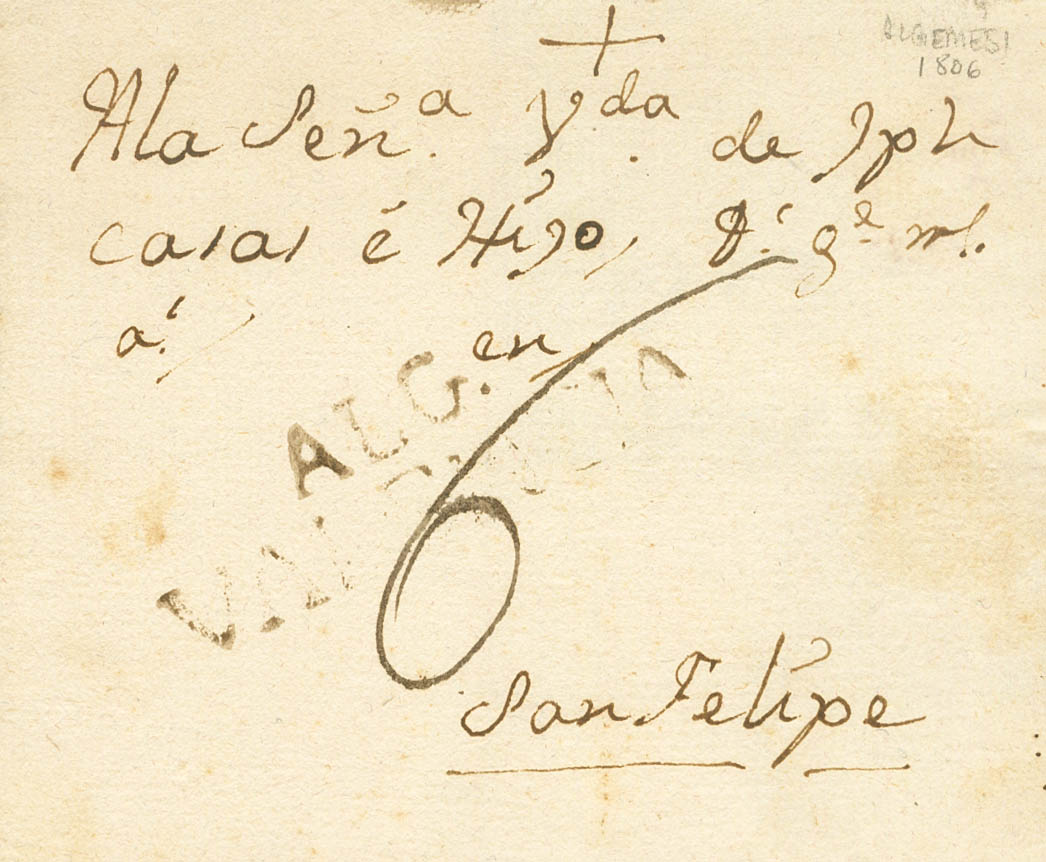 ALGEMESI
1806
A la Señ.a V.da de Jph
casas é Hijo, D.s g.e m.s
a.s
en
ALG.
VALENCIA
6
San Felipe